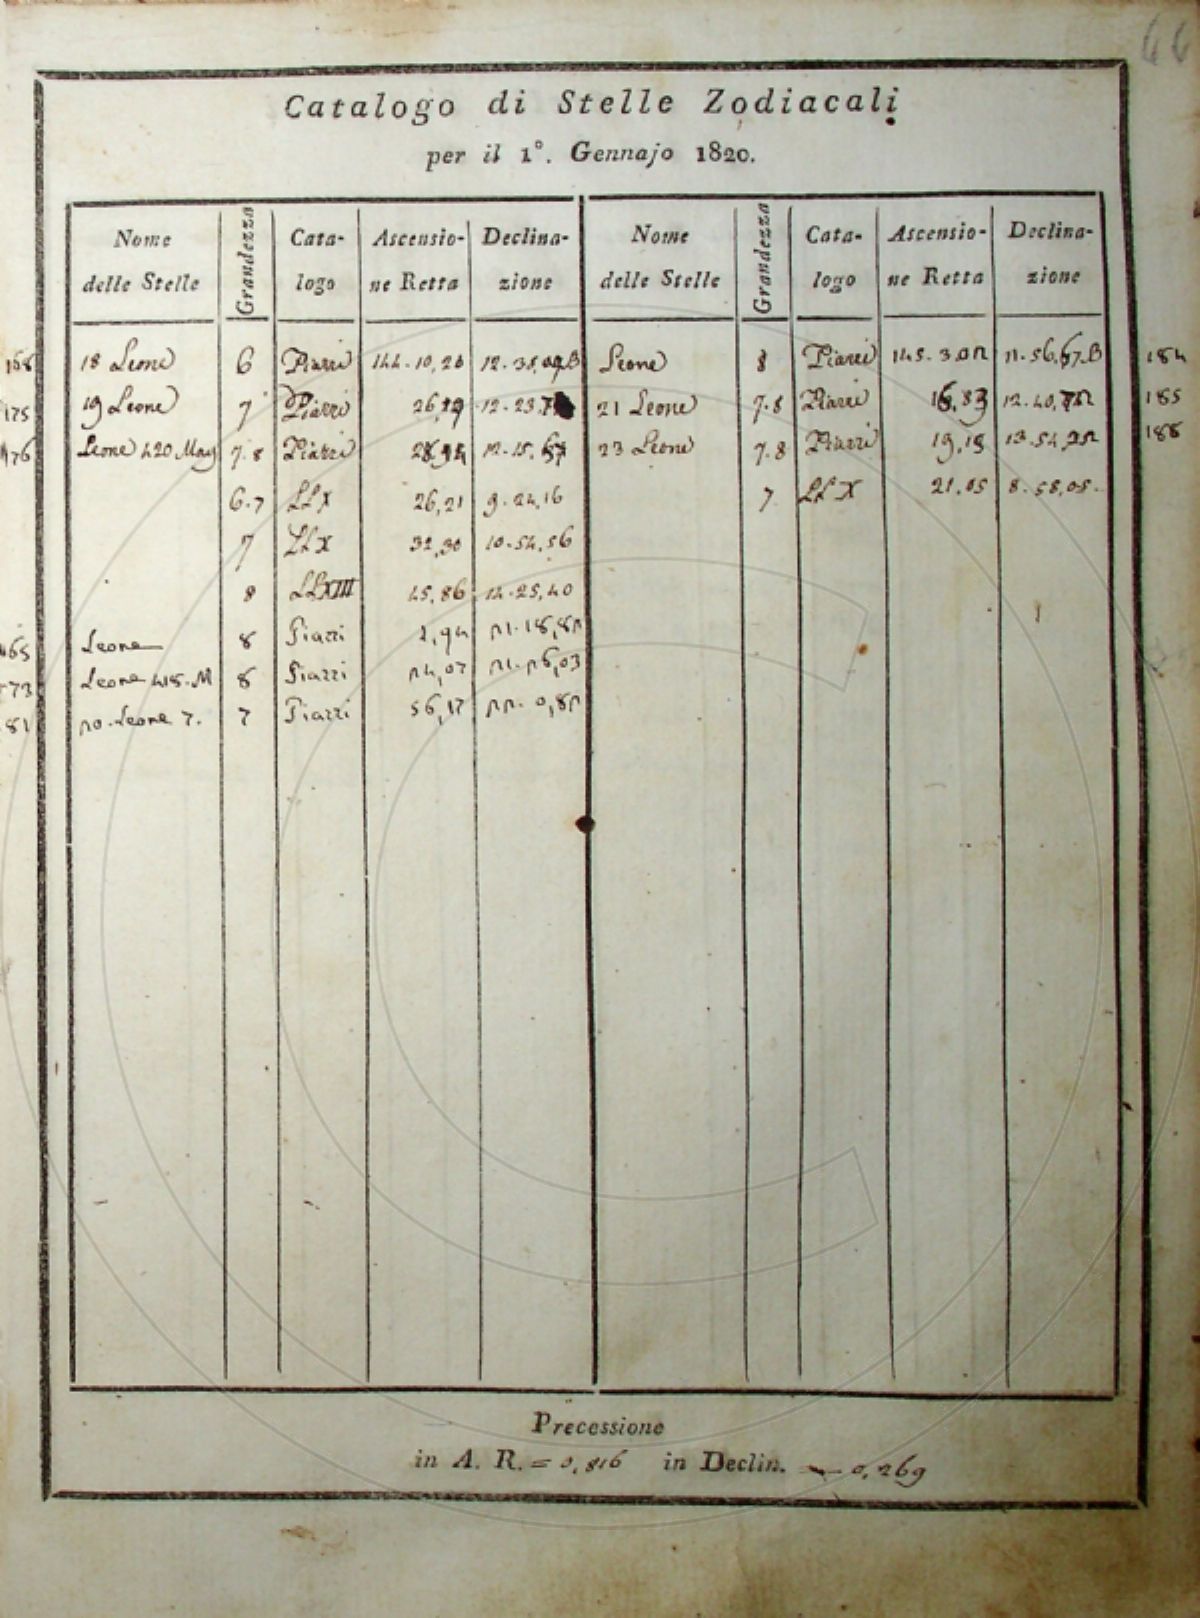 66
Catalogo di Stelle Zodiacali
per il 1°. Gennajo 1820.
Nome delle Stelle Grandezza Cata-logo Ascensio-ne Retta Declina-zione Nome delle Stelle Grandezza Cata-logo Ascensio-ne Retta Declina-zione
168 18 Leone 6 Piazzi 144.10,20 Leone 8 Piazzi 11.56,67.B 184
175 19 Leone 7 Piazzi 21 Leone 7.8 Piazzi 16,83 185
176 Leone 420 May 7.8 Piazzi 23 Leone 7.8 Piazzi 19,18 188
6.7 LL X 26,21 9.24,16 7 LL X 21,05 8.58,05.
7 LL X 32,30 10.54,56
8 LL XIII 45,86 14.25,40
165 Leone 8 Piazzi
173 Leone 418. M 8 Piazzi 24,07 21.26,03
181 20. Leone 7. 7 Piazzi 56,17
Precessione
in A. R. = 0,816 in Declin. — 0,269